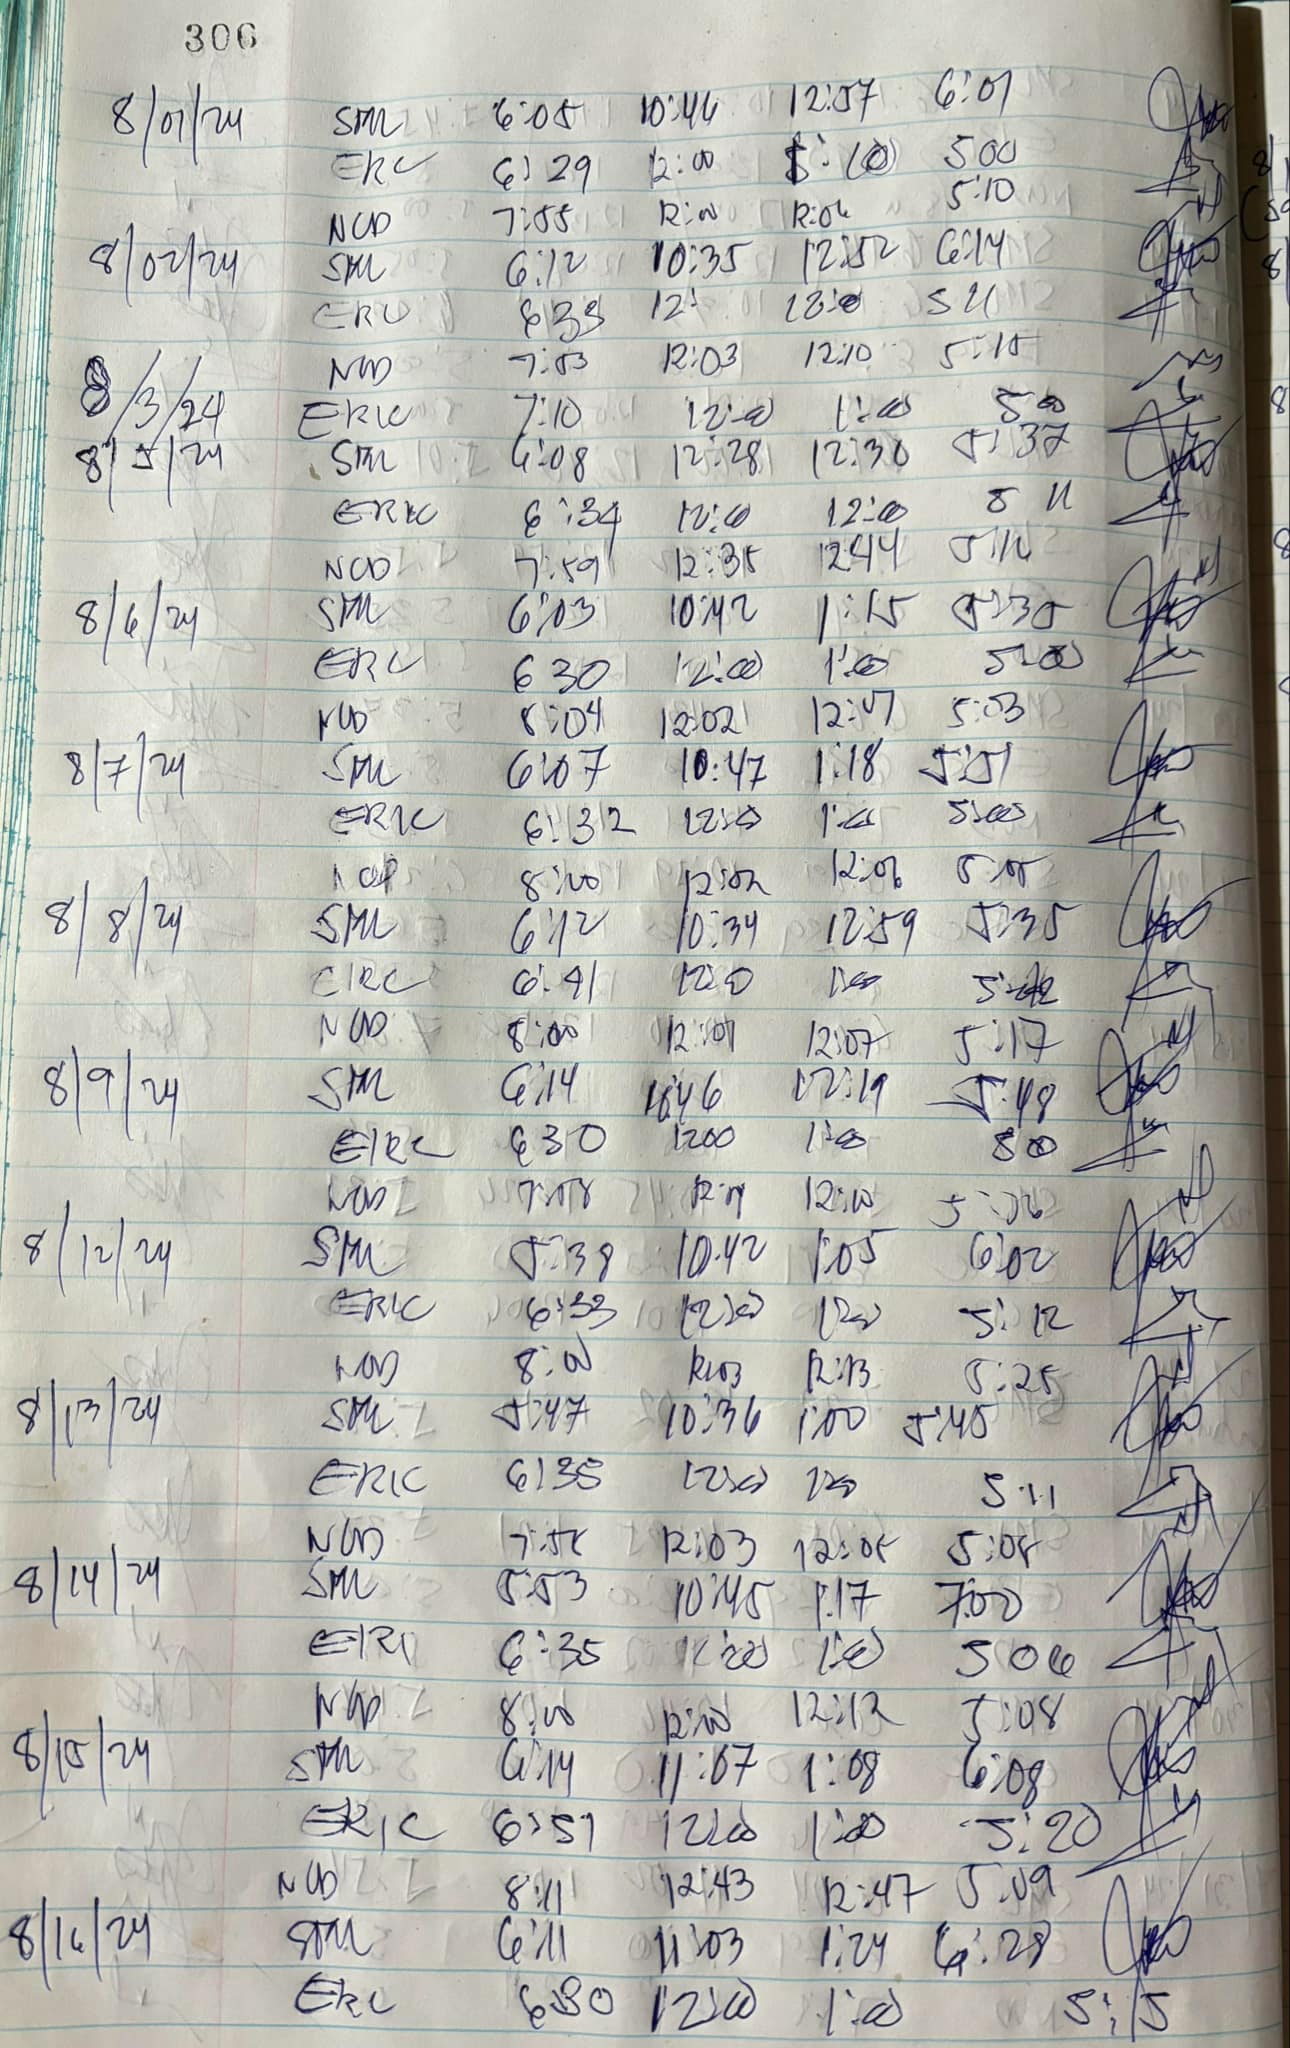 306
8/01/24 SML 6:05 10:46 12:57 6:01
ERC 6:29 12:00 5:00
NCD 7:55 12:00 12:06 5:10
8/02/24 SML 6:12 10:35 12:52 6:14
ERC 6:33 12:
NCD 7:53 12:03 12:10 5:15
8/3/24 ERIC 7:10 12:00 1:00 5:00
8/5/24 SML 6:08 12:28 12:30 5:37
ERIC 6:34 12:00 12:00 5 11
NCD 7:59 12:35 12:44
8/6/24 SML 6:03 10:42 1:15 5:35
ERC 6 30 12:00 1:00 5:00
NCD 8:04 12:02 12:07 5:03
8/7/24 SML 6:07 10:47 1:18 5:51
ERIC 6:32 12:00 1:00 5:00
NCD 8:00 12:02 12:06 5:05
8/8/24 SML 6:12 10:34 12:59 5:35
ERC 6:41 12:0 1:00
NCD 8:00 12:01 12:07 5:17
8/9/24 SML 6:14 10:46 12:19 5:48
EIRC 6 30 1200 1:00
NCD 12:10 5:06
8/12/24 SML 5:38 10:42 1:05 6:02
ERIC 6:33 12:00 1:00 5:12
NCD 8:00 12:03 12:13 5:25
8/13/24 SML 5:47 10:36 1:00 5:45
ERIC 6:35 12:00 1:00 5:11
NCD 12:03 12:05 5:08
8/14/24 SML 5:53 10:45 1:17 7:00
ERI 6:35 1:00 5 06
NCD 8:00 12:00 12:12 5:08
8/15/24 SML 6:14 11:07 1:08 6:08
ERIC 6:51 12:00 1:00 5:20
NCD 8:11 12:43 12:47 5:09
8/16/24 SML 6:11 11:03 1:24 6:28
ERC 6:30 12:00 1:00 5:15